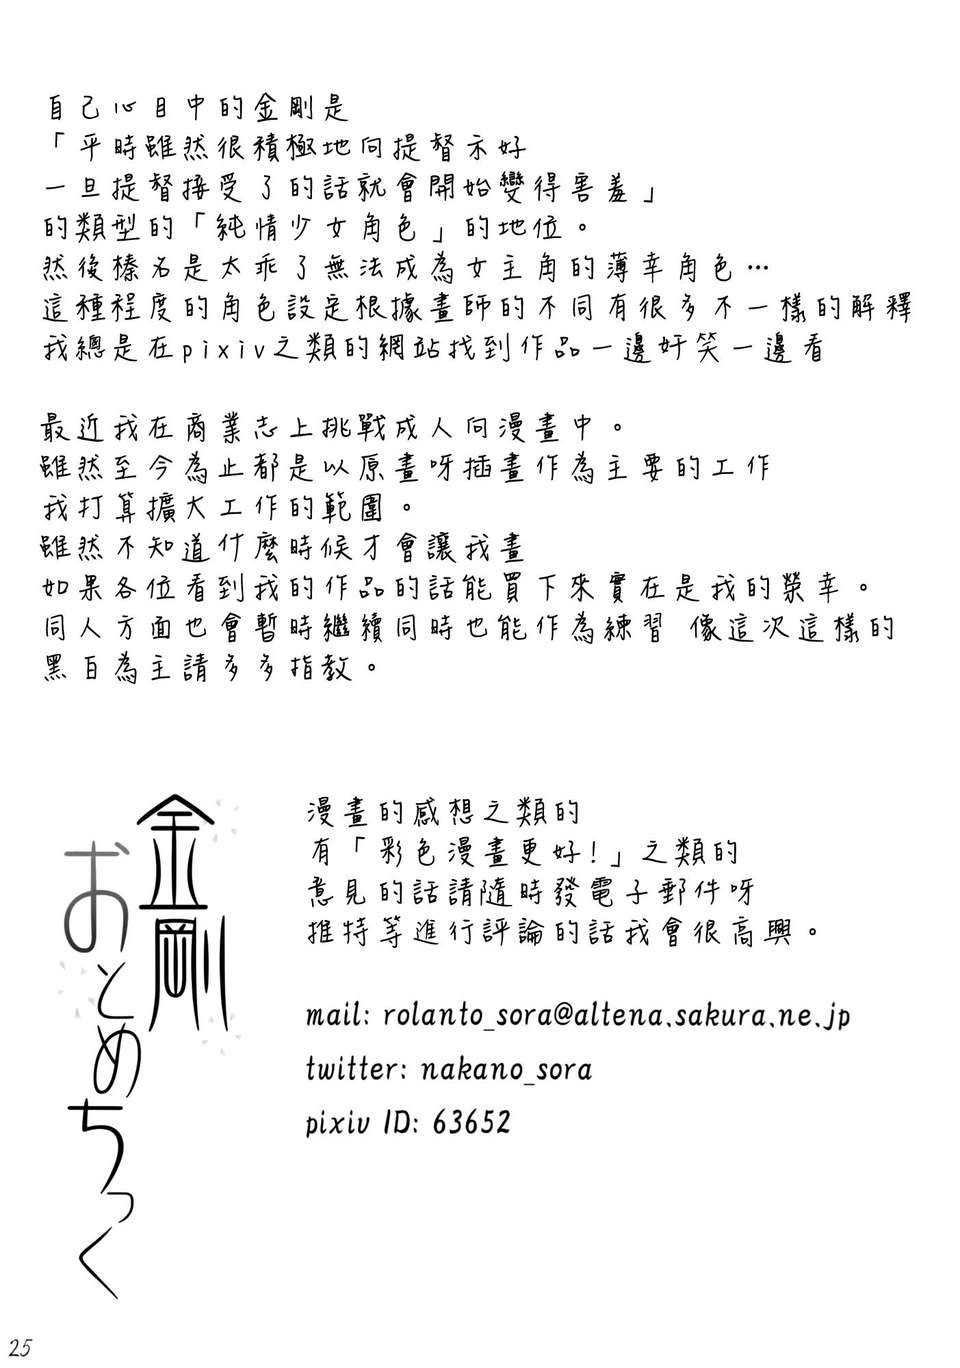 自己心目中的金剛是
「平時雖然很積極地向提督示好
一旦提督接受了的話就會開始變得害羞」
的類型的「純情少女角色」的地位。
然後榛名是太乖了無法成為女主角的薄幸角色…
這種程度的角色設定根據畫師的不同有很多不一樣的解釋
我總是在pixiv之類的網站找到作品一邊奸笑一邊看
最近我在商業志上挑戰成人向漫畫中。
雖然至今為止都是以原畫呀插畫作為主要的工作
我打算擴大工作的範圍。
雖然不知道什麼時候才會讓我畫
如果各位看到我的作品的話能買下來實在是我的榮幸。
同人方面也會暫時繼續同時也能作為練習 像這次這樣的
黑白為主請多多指教。
金剛
おとめちっく
漫畫的感想之類的
有「彩色漫畫更好!」之類的
意見的話請隨時發電子郵件呀
推特等進行評論的話我會很高興。
mail: rolanto_sora@altena.sakura.ne.jp
twitter: nakano_sora
pixiv ID: 63652
25